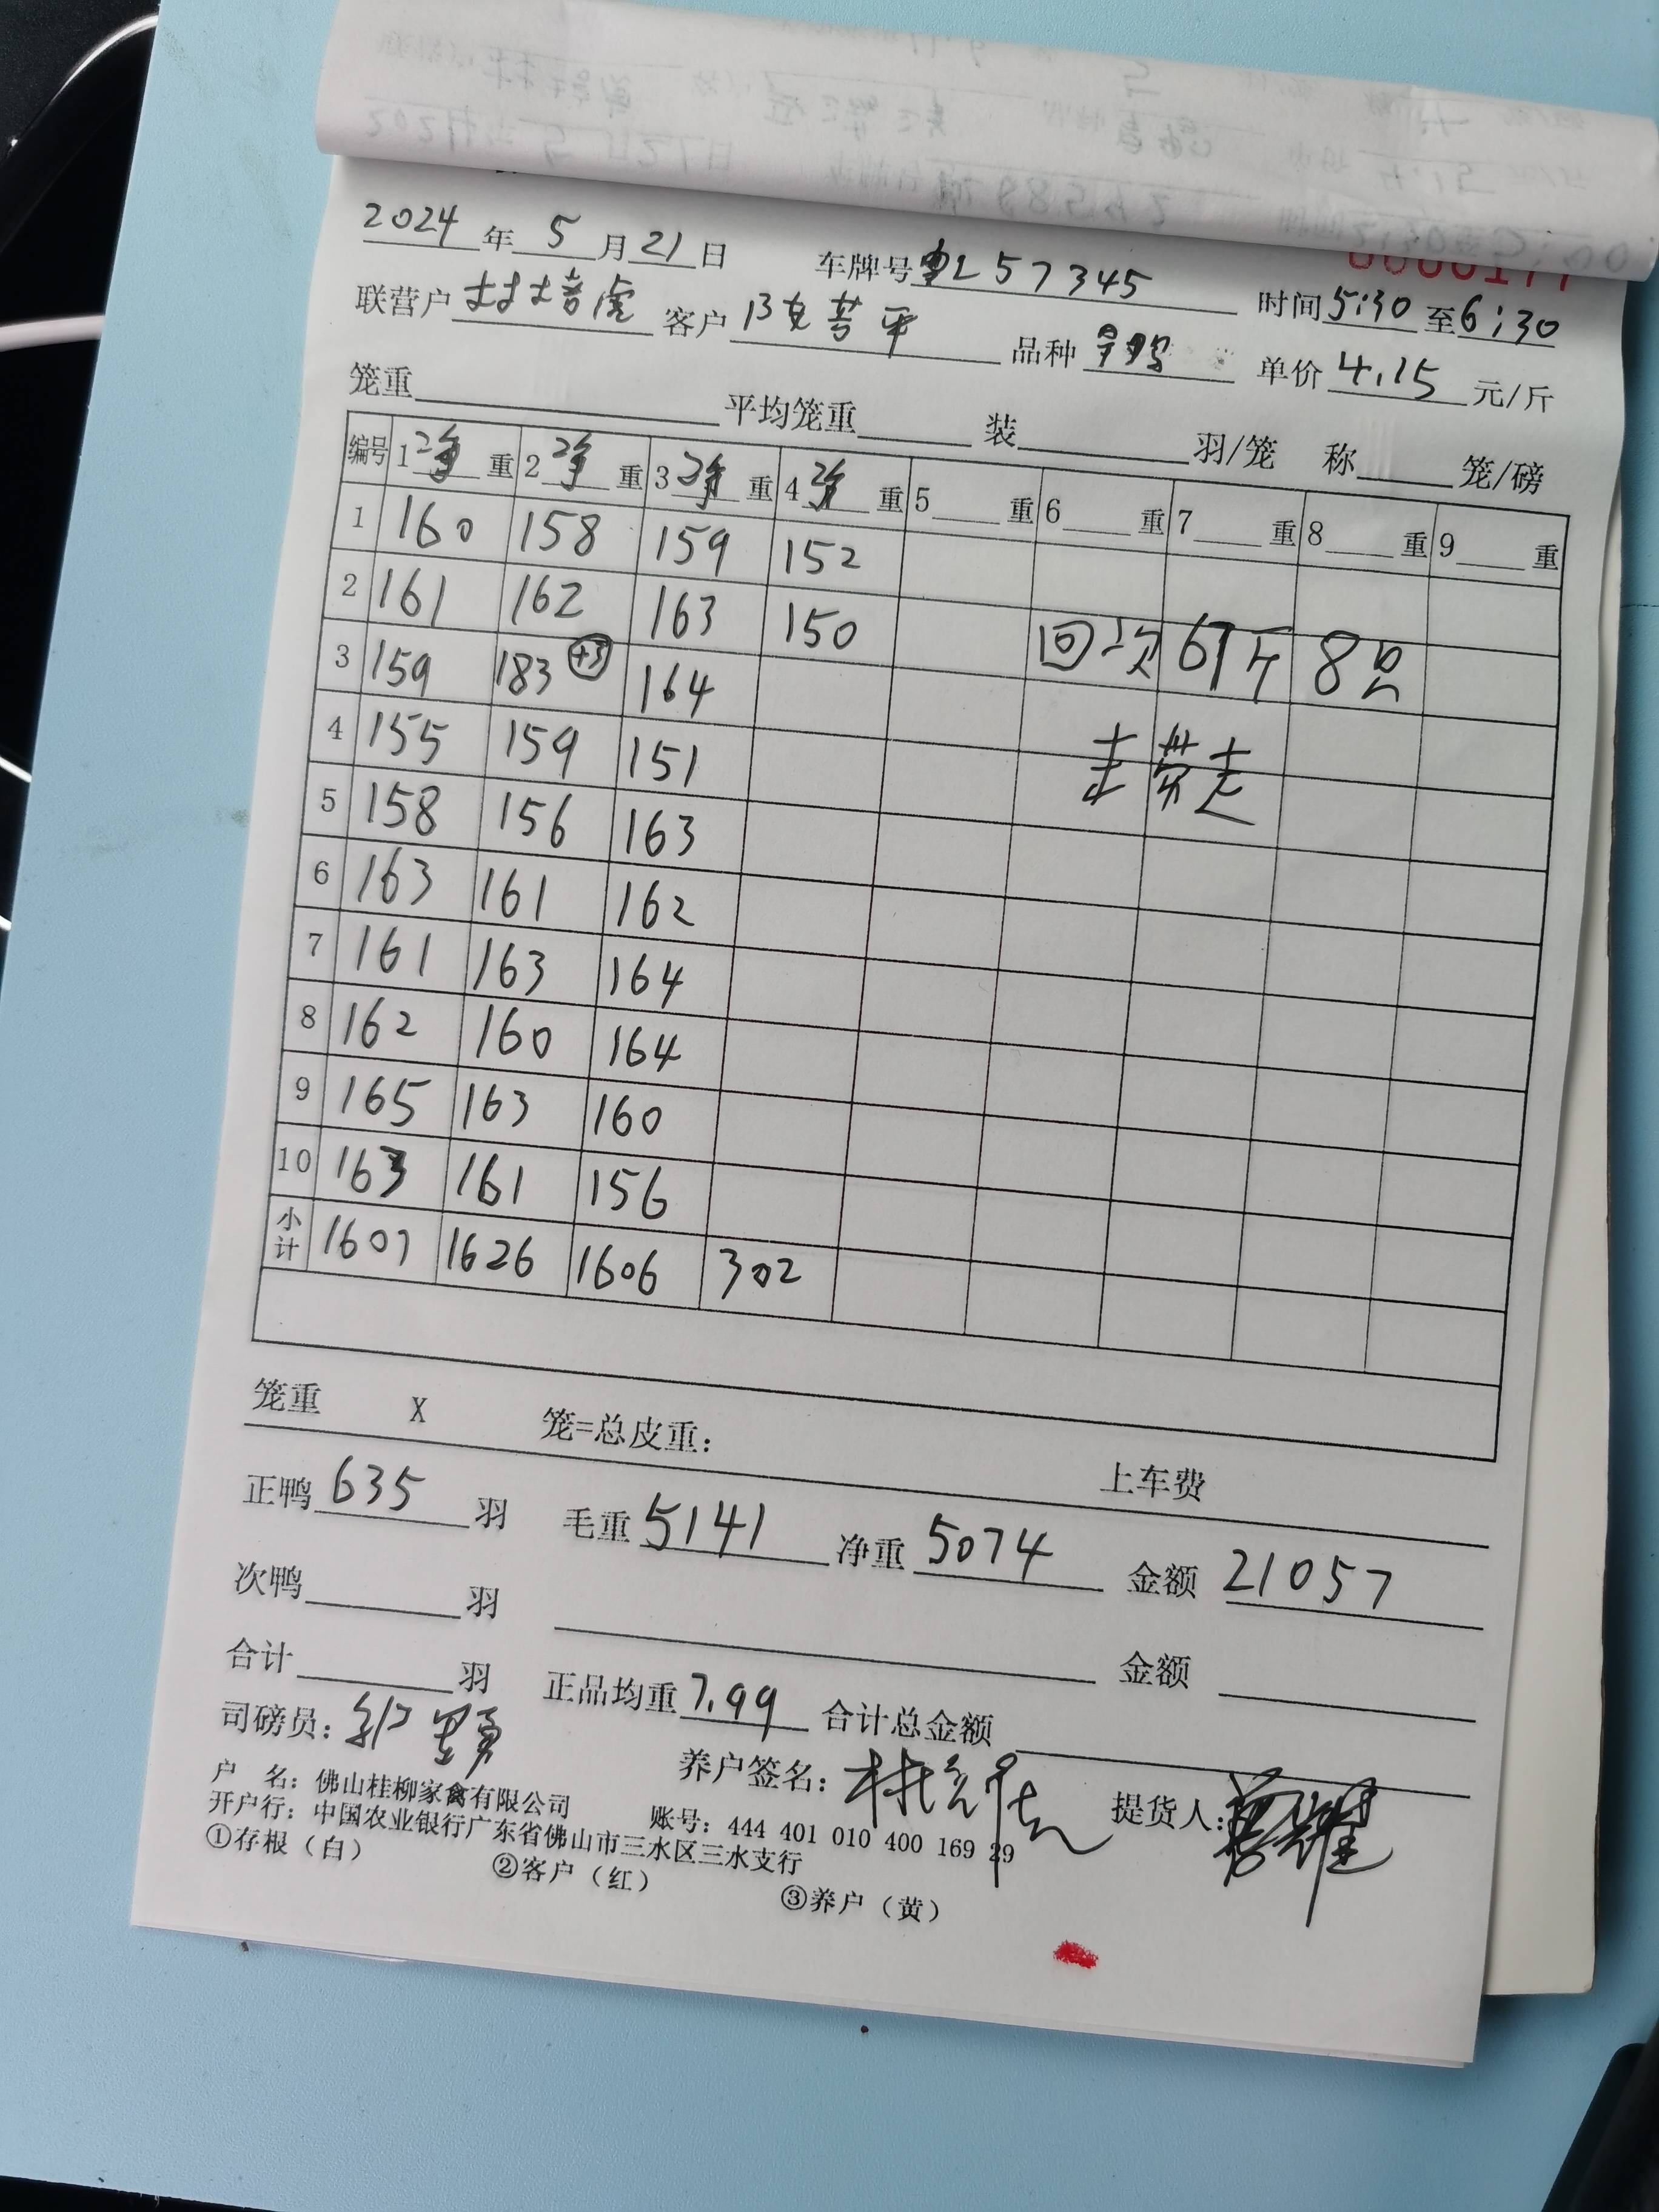 2024年5月21日 车牌号粤L57345
联营户林培虎 客户 陈克芳平 时间5:30至6:30
品种 单价4.15元/斤
笼重 平均笼重 装 羽/笼 称 笼/磅
编号 1净重 2净重 3净重 4净重 5重 6重 7重 8重 9重
1 160 158 159 152
2 161 162 163 150 回次 67斤 8只
3 159 183 +3 164
4 155 159 151
5 158 156 163
6 163 161 162
7 161 163 164
8 162 160 164
9 165 163 160
10 163 161 156
小计 1607 1626 1606 302
笼重 X 笼=总皮重: 上车费
正鸭635羽 毛重5141 净重5074 金额21057
次鸭 羽 金额
合计 羽 正品均重7.99 合计总金额
司磅员: 养户签名: 提货人:
户 名: 佛山桂柳家禽有限公司 账号: 444 401 010 400 169 29
开户行: 中国农业银行广东省佛山市三水区三水支行
①存根（白） ②客户（红） ③养户（黄）